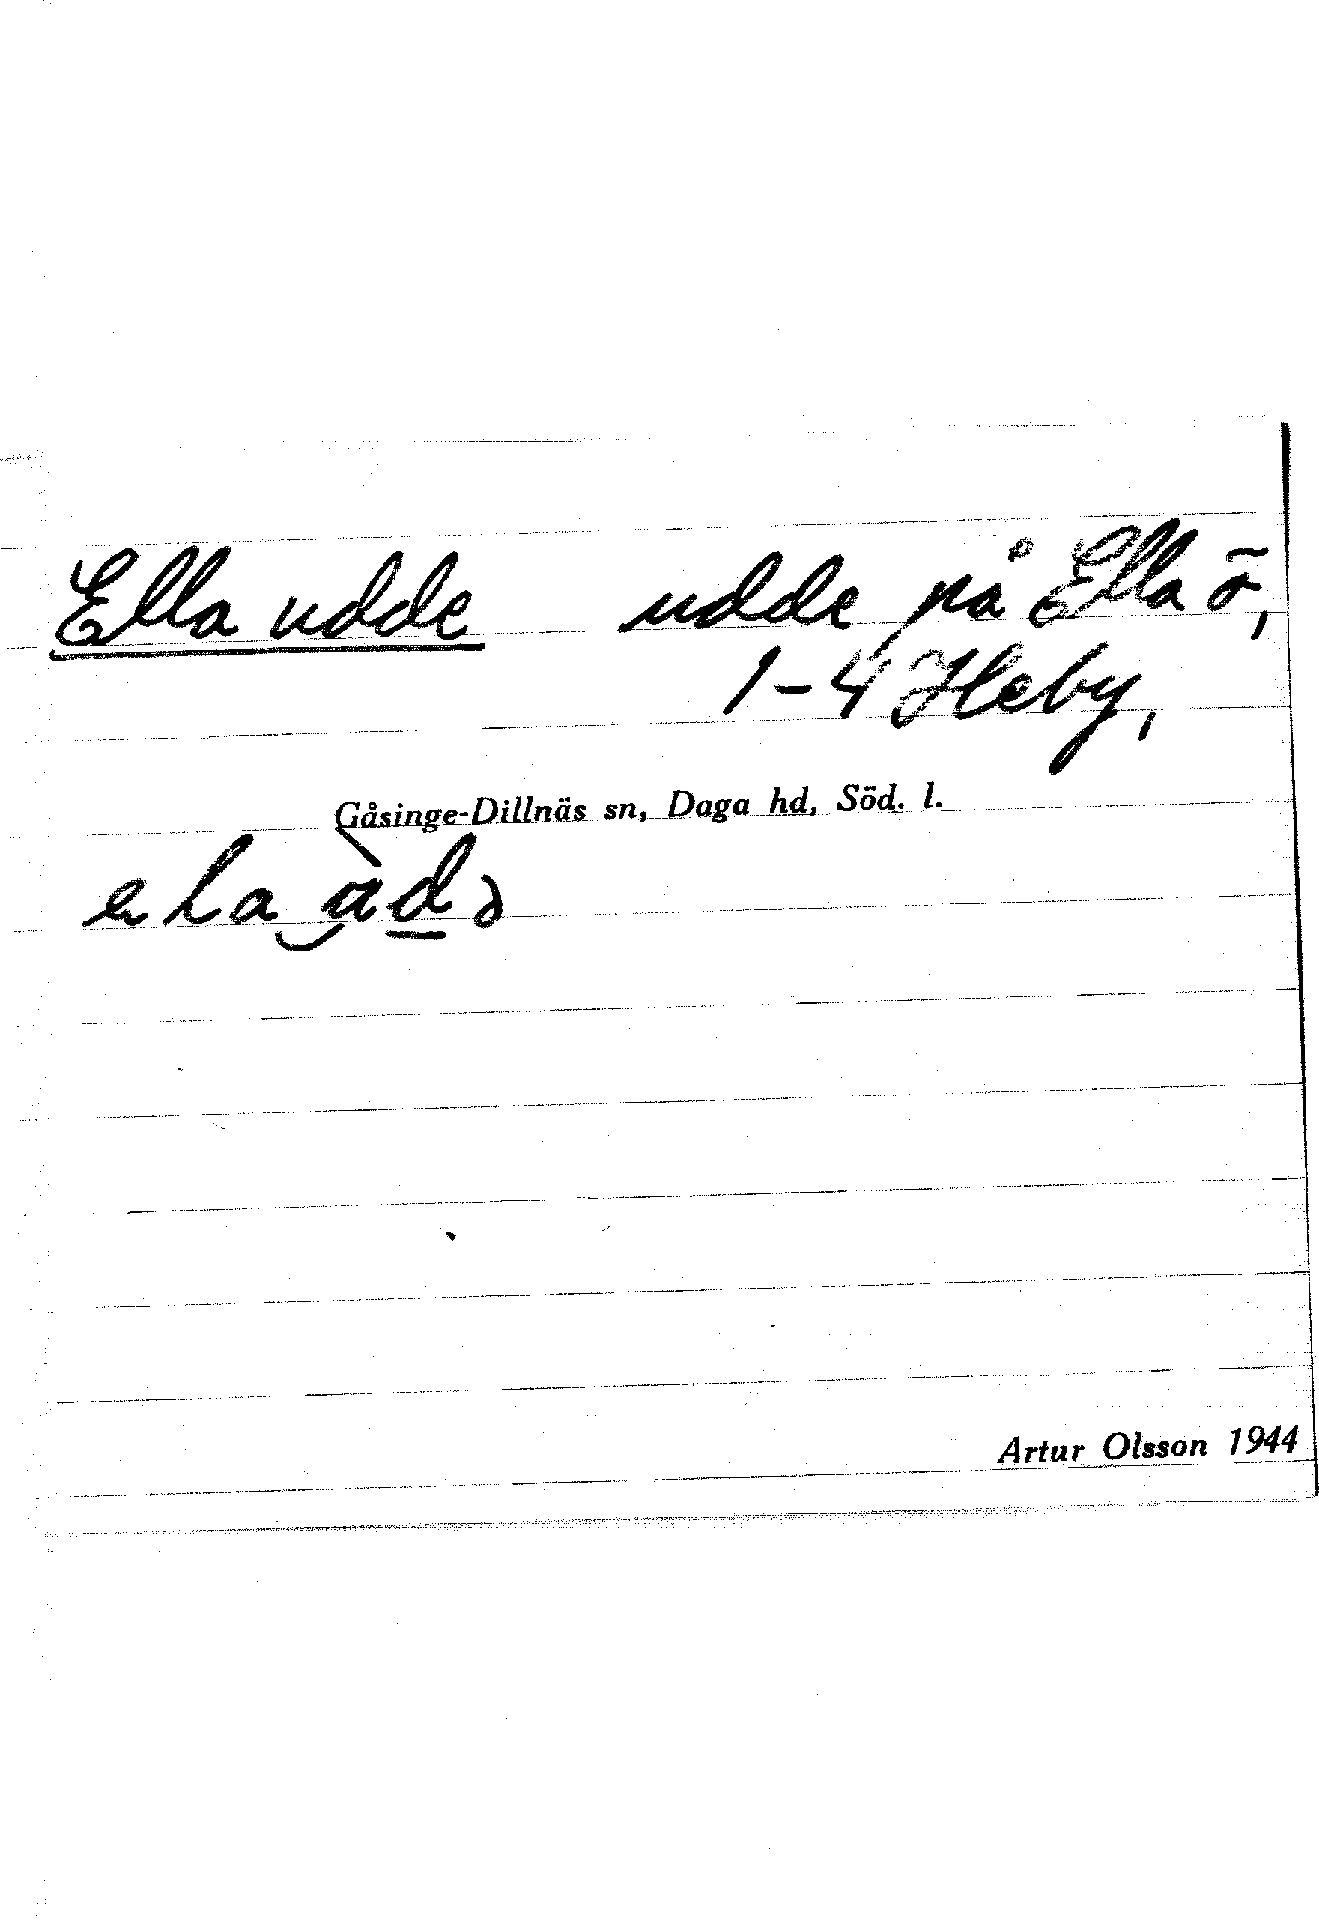 Ella udde udde på Ella ö,
1-4 Heby,
Gåsinge-Dillnäs sn, Daga hd, Söd. l.
ela ùdə
Artur Olsson 1944